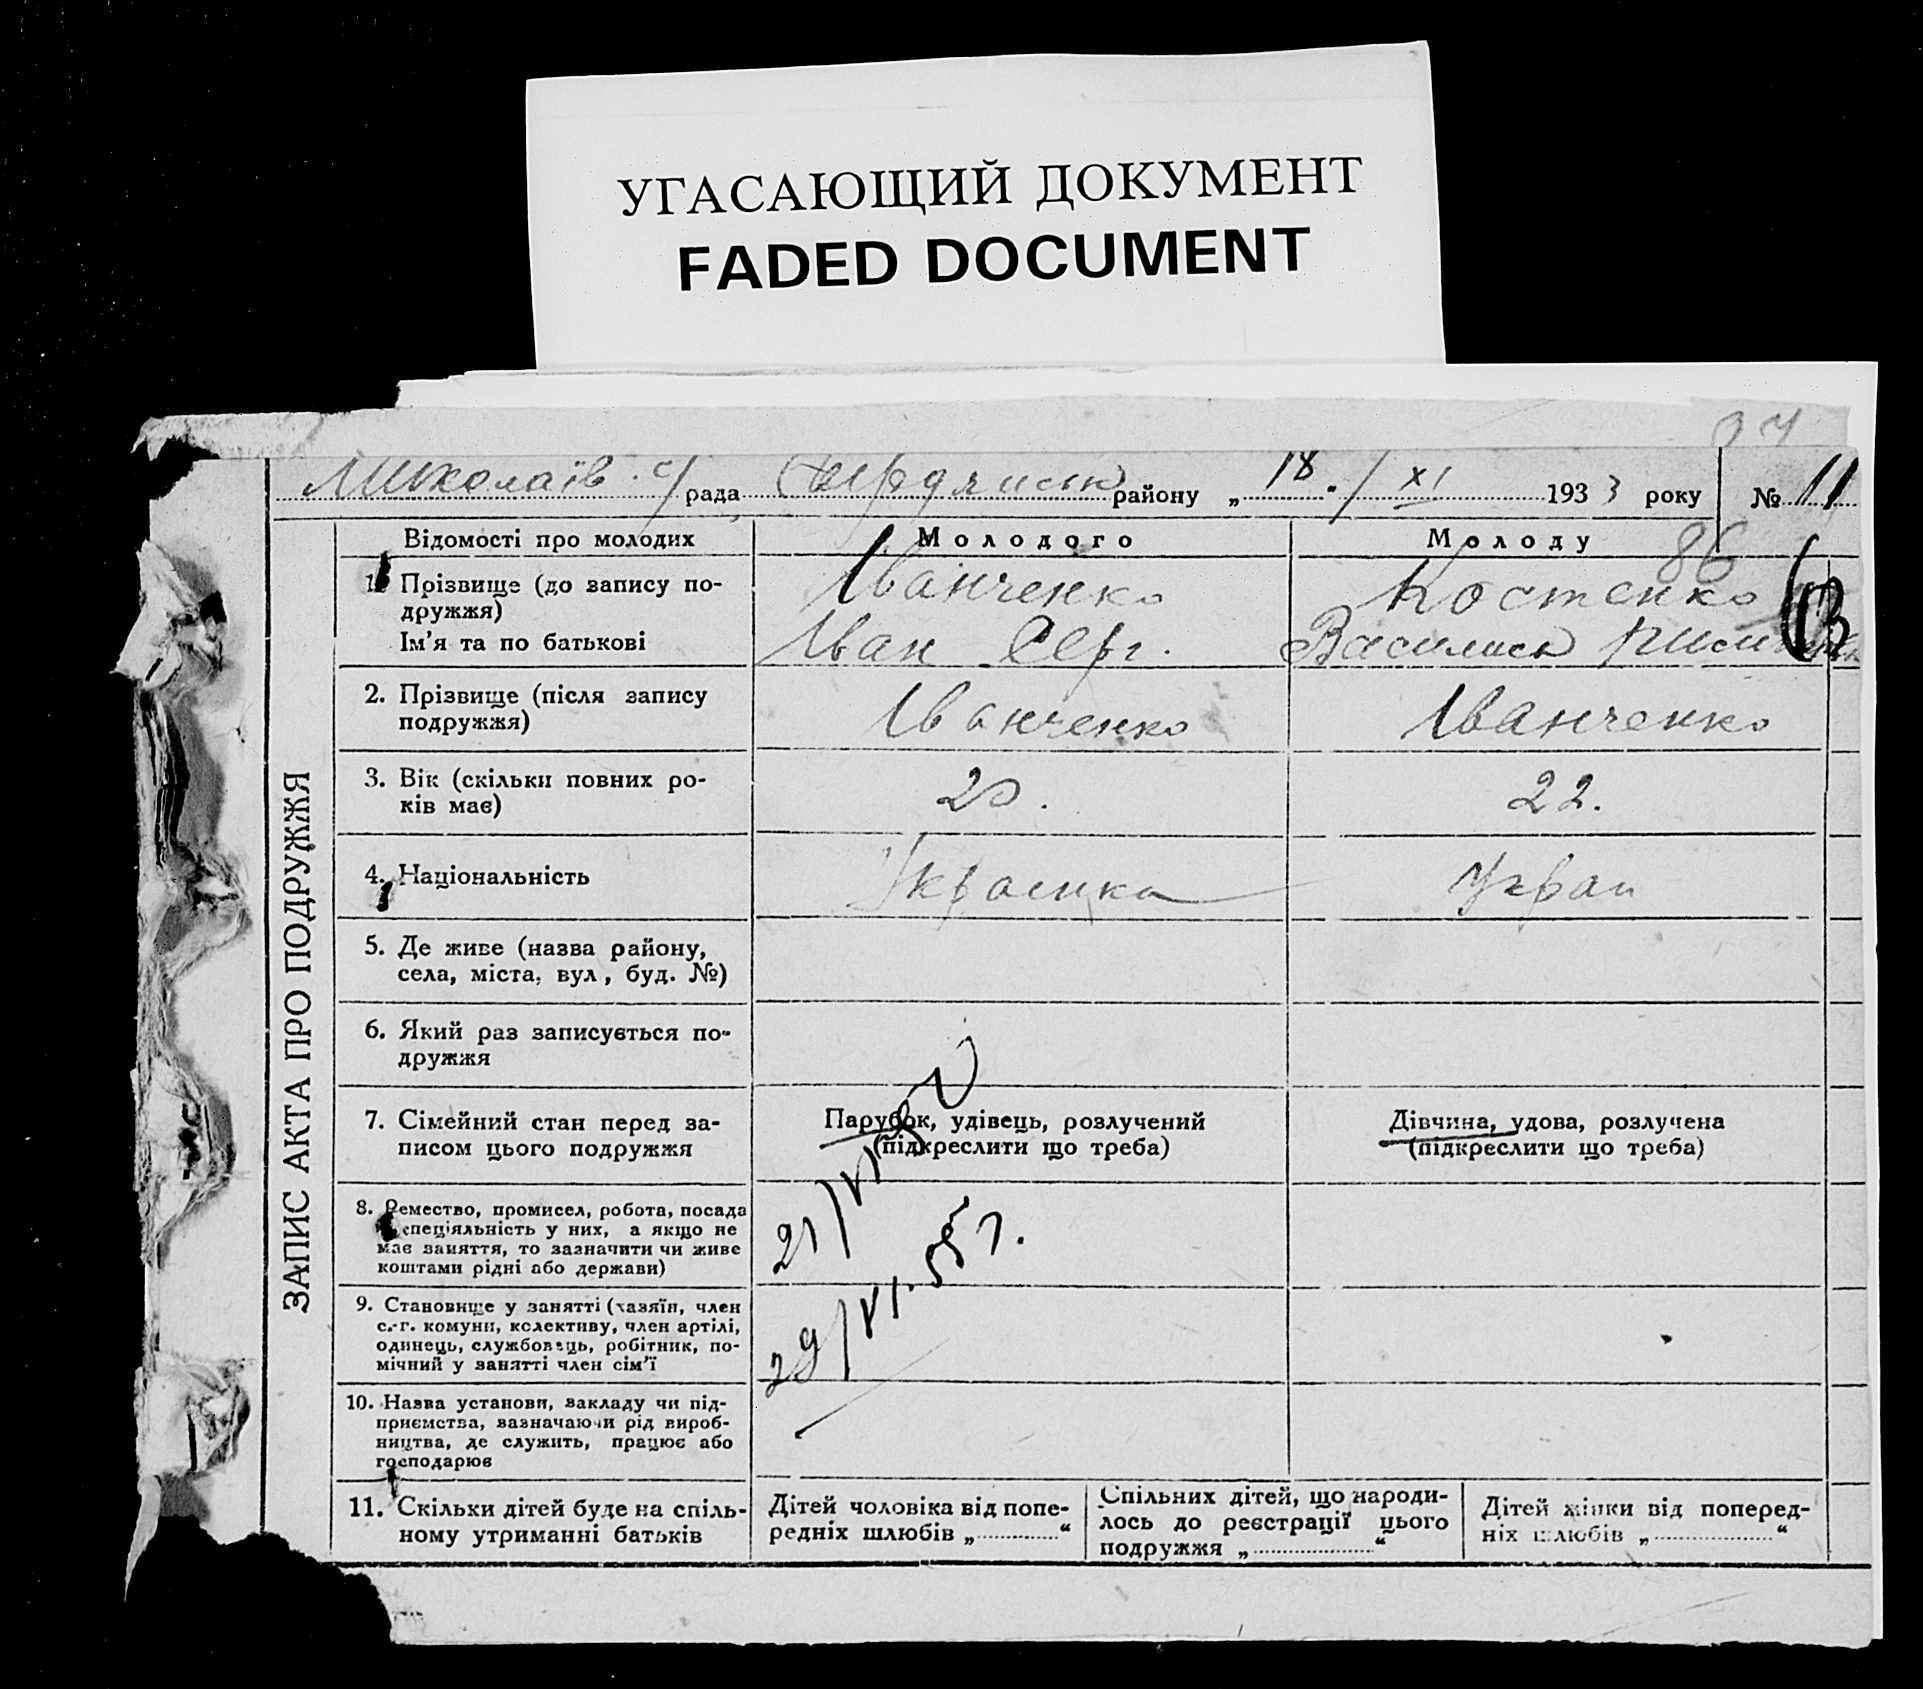 УГАСАЮЩИЙ ДОКУМЕНТ
FADED DOCUMENT
Миколаїв. с/рада району „18“ / XI 1933 року № 11
86
ЗАПИС АКТА ПРО ПОДРУЖЖЯ
Відомості про молодих
Молодого
Молоду
1. Прізвище (до запису по-
дружжя)
Ім'я та по батькові
Іванченко
Іван Серг.
Костенко
Василиси
2. Прізвище (після запису
подружжя)
Іванченко
Іванченко
3. Вік (скільки повних ро-
ків має)
20.
22.
4. Національність
Українка
Украї
5. Де живе (назва району,
села, міста, вул, буд. №)
6. Який раз записується по-
дружжя
7. Сімейний стан перед за-
писом цього подружжя
Парубок, удівець, розлучений
(підкреслити що треба)
Дівчина, удова, розлучена
(підкреслити що треба)
8. Ремество, промисел, робота, посада
спеціяльність у них, а якщо не
має заняття, то зазначити чи живе
коштами рідні або держави)
21/VI
29/VI-55 г.
9. Становище у занятті (хазяїн, член
с.-г. комуни, колективу, член артілі,
одинець, службовець, робітник, по-
мічний у занятті член сім'ї
10. Назва установи, закладу чи під-
приємства, зазначаючи рід вироб-
ництва, де служить, працює або
господарює
11. Скільки дітей буде на спіль-
ному утриманні батьків
Дітей чоловіка від попе-
редніх шлюбів „ “
Спільних дітей, що народи-
лось до реєстрації цього
подружжя „ “
Дітей жінки від поперед-
ніх шлюбів „ “